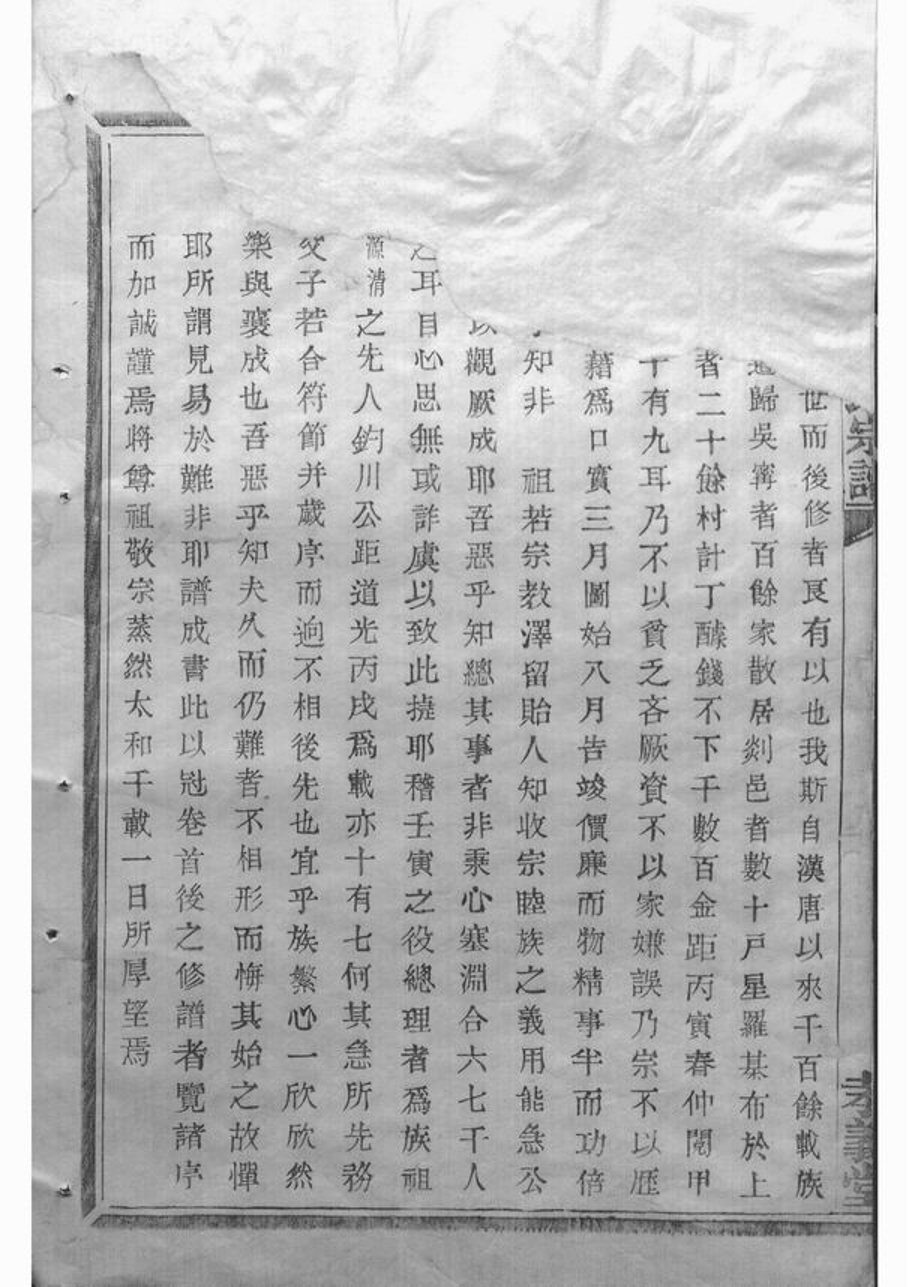 宗譜
孝義堂
世而後修者良有以也我斯自漢唐以來千百餘載族
歸吳寗者百餘家散居剡邑者數十戸星羅棊布於上
者二十餘村計丁醵錢不下千數百金距丙寅春仲閱甲
十有九耳乃不以貧乏吝厥資不以家嫌誤乃宗不以歴
藉爲口實三月圖始八月告竣價廉而物精事半而功倍
知非 祖若宗教澤留貽人知收宗睦族之義用能急公
以觀厥成耶吾惡乎知總其事者非秉心塞淵合六七千人
之耳目心思無或詐虞以致此撓耶稽壬寅之役總理者爲族祖
源清之先人鈞川公距道光丙戌爲載亦十有七何其急所先務
父子若合符節并歲序而逈不相後先也宜乎族繁心一欣欣然
樂與襄成也吾惡乎知夫久而仍難者不相形而悔其始之故憚
耶所謂見易於難非耶譜成書此以冠卷首後之修譜者覽諸序
而加誠謹焉將尊祖敬宗蒸然太和千載一日所厚望焉